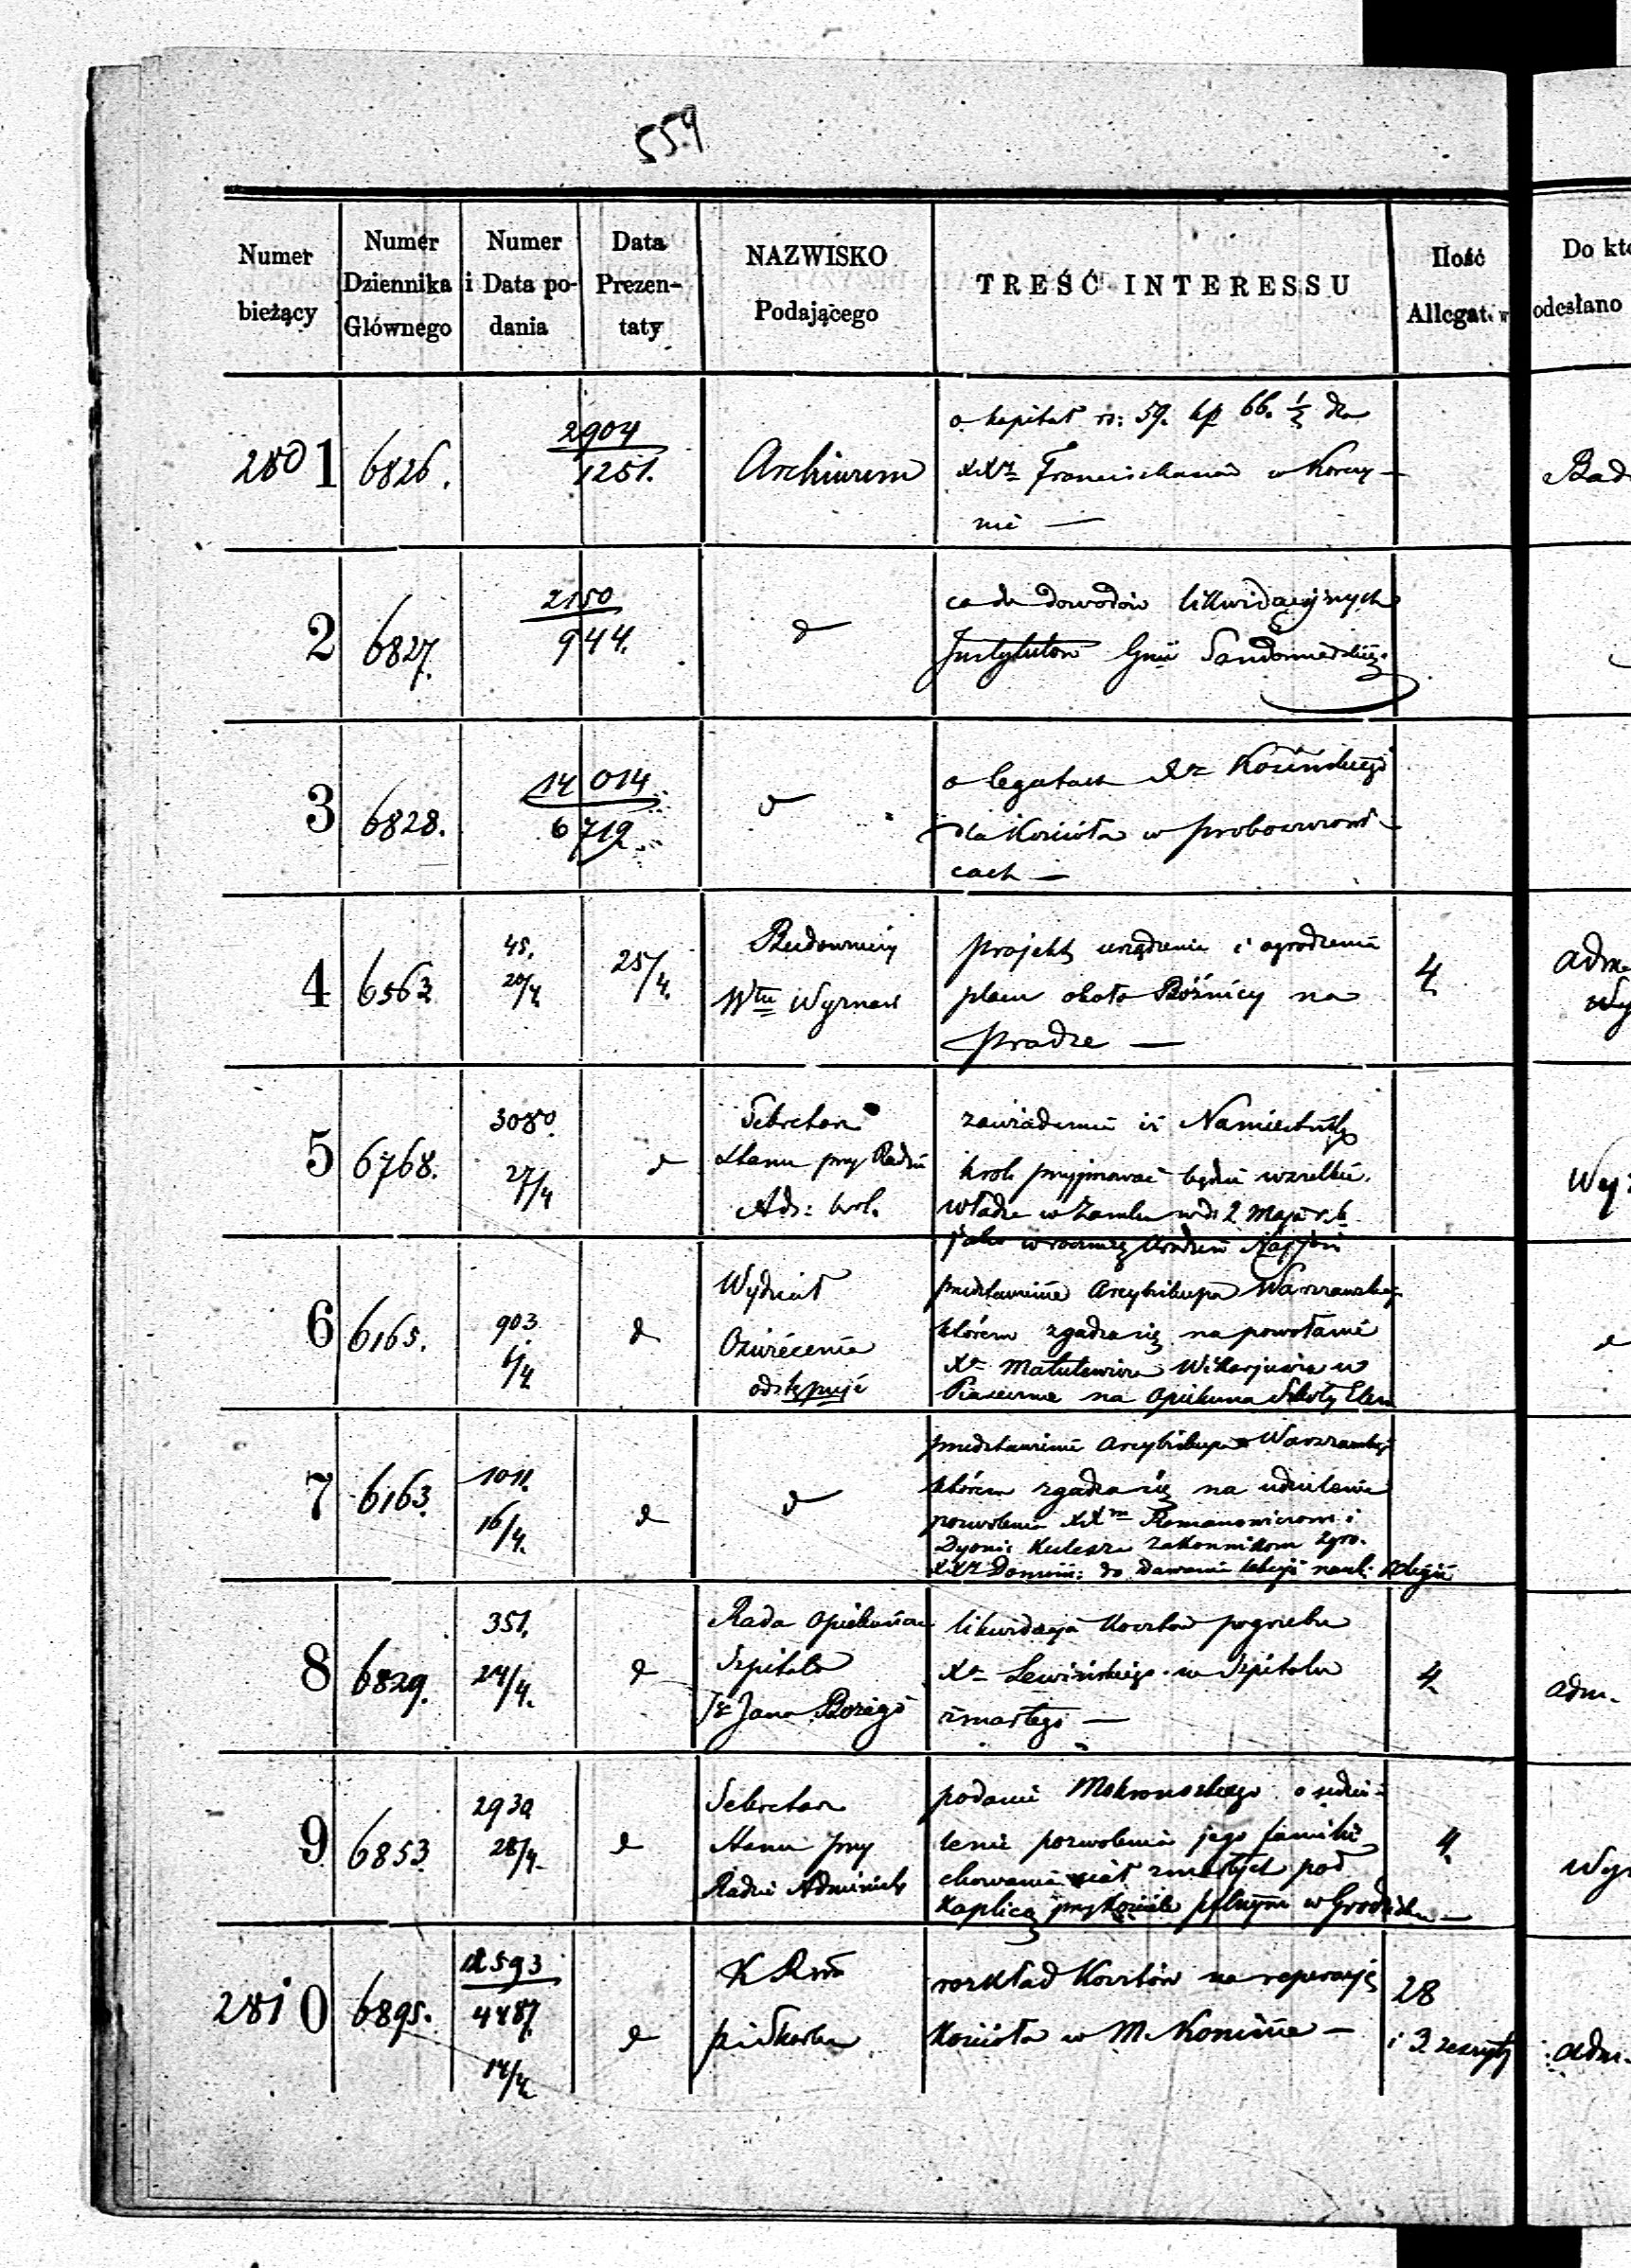 554
Numer bieżący
Numer Dziennika Głównego
Numer i Data podania
Data Prezentaty
NAZWISKO Podającego
TREŚĆ INTERESSU
Ilość Allegat.
Do kt
odesłano
2801
6826.
2904
1251.
Archiwum
o kapitał rs: 59. kp 66. ½ dla
XXz Franciszkanów w Korczy-
nie —
2
6827.
2150
944.
d
dowodów likwidacyjnych
Instytutów Gnii Sandomierskiej
3
6828.
14014
6719
d
o legatach Xz Kozińskiego
dla Kościoła w
cach —
4
6563
45.
20/4
25/4.
Budowniczy
Wtu
projekt urządzenia i ogrodzenia
placu około Bóźnicy na
Pradze —
4.
adm.
5
6768.
3080.
27/4
d
Sekretarz
Stanu przy Radzie
Ads: krol.
zawiadomie iż Namiestnik
krol. przyjmować będzie wszelkie
władze w Zamku w d: 2 Maja r.b
jako w rocznicę Urodzin Najjaś
6
6165.
903.
6/4
d
Wydział
Oświécenia
odstępuje
przedstawienie Arcybiskupa Warszawskiego
którém zgadza się na powołanie
Xa Matulewicza Wikarjusza w
Piasecznie na Opiekuna Szkoły Elem
d
7
6163.
1011.
16/4.
d
d
przedstawienie Arcybiskupa Warszawskiego
którém zgadza się na udzielenie
pozwolenia XXm Romanowiczowi i
Dyoni: Kulesza zakonnikom zgro.
XXz Domini: do dawania lekcyi nauk: Religii
8
6829.
351.
24/4.
d
Rada Opiekuńcza
Szpitala
Sgo Jana Bożego
likwidacja kosztów pogrzebu
Xa Lewińskiego w Szpitalu
zmarłego —
4.
adm.
9
6853.
28/4.
d
Sekretarz
Stanu przy
Radzie Administr
podanie Mokronoskiego o udzie-
lenie pozwolenia jego familii
chowania ciał zmarłych pod
kaplicą przy kościele w Grodzisku —
4.
2810
6895.
12593
4487.
14/4
d
K R
Skarbu
rozkład kosztów na reperacyę
kościoła w M. Koninie —
28
i 3 zeszyty
adm.